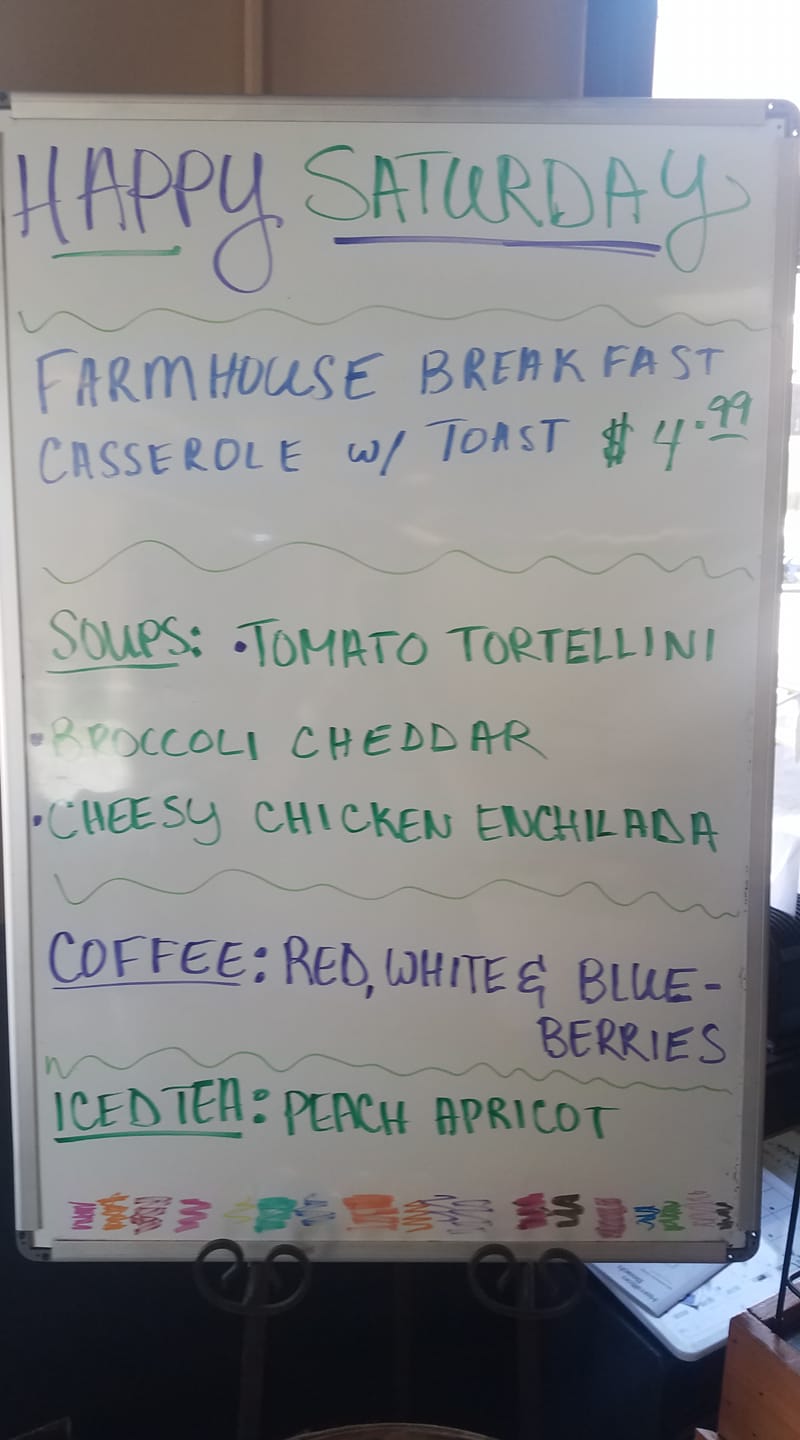 HAPPY SATURDAY
FARMHOUSE BREAKFAST
CASSEROLE w/ TOAST $4.99
SOUPS: •TOMATO TORTELLINI
•BROCCOLI CHEDDAR
•CHEESY CHICKEN ENCHILADA
COFFEE: RED, WHITE & BLUE-
BERRIES
ICED TEA: PEACH APRICOT